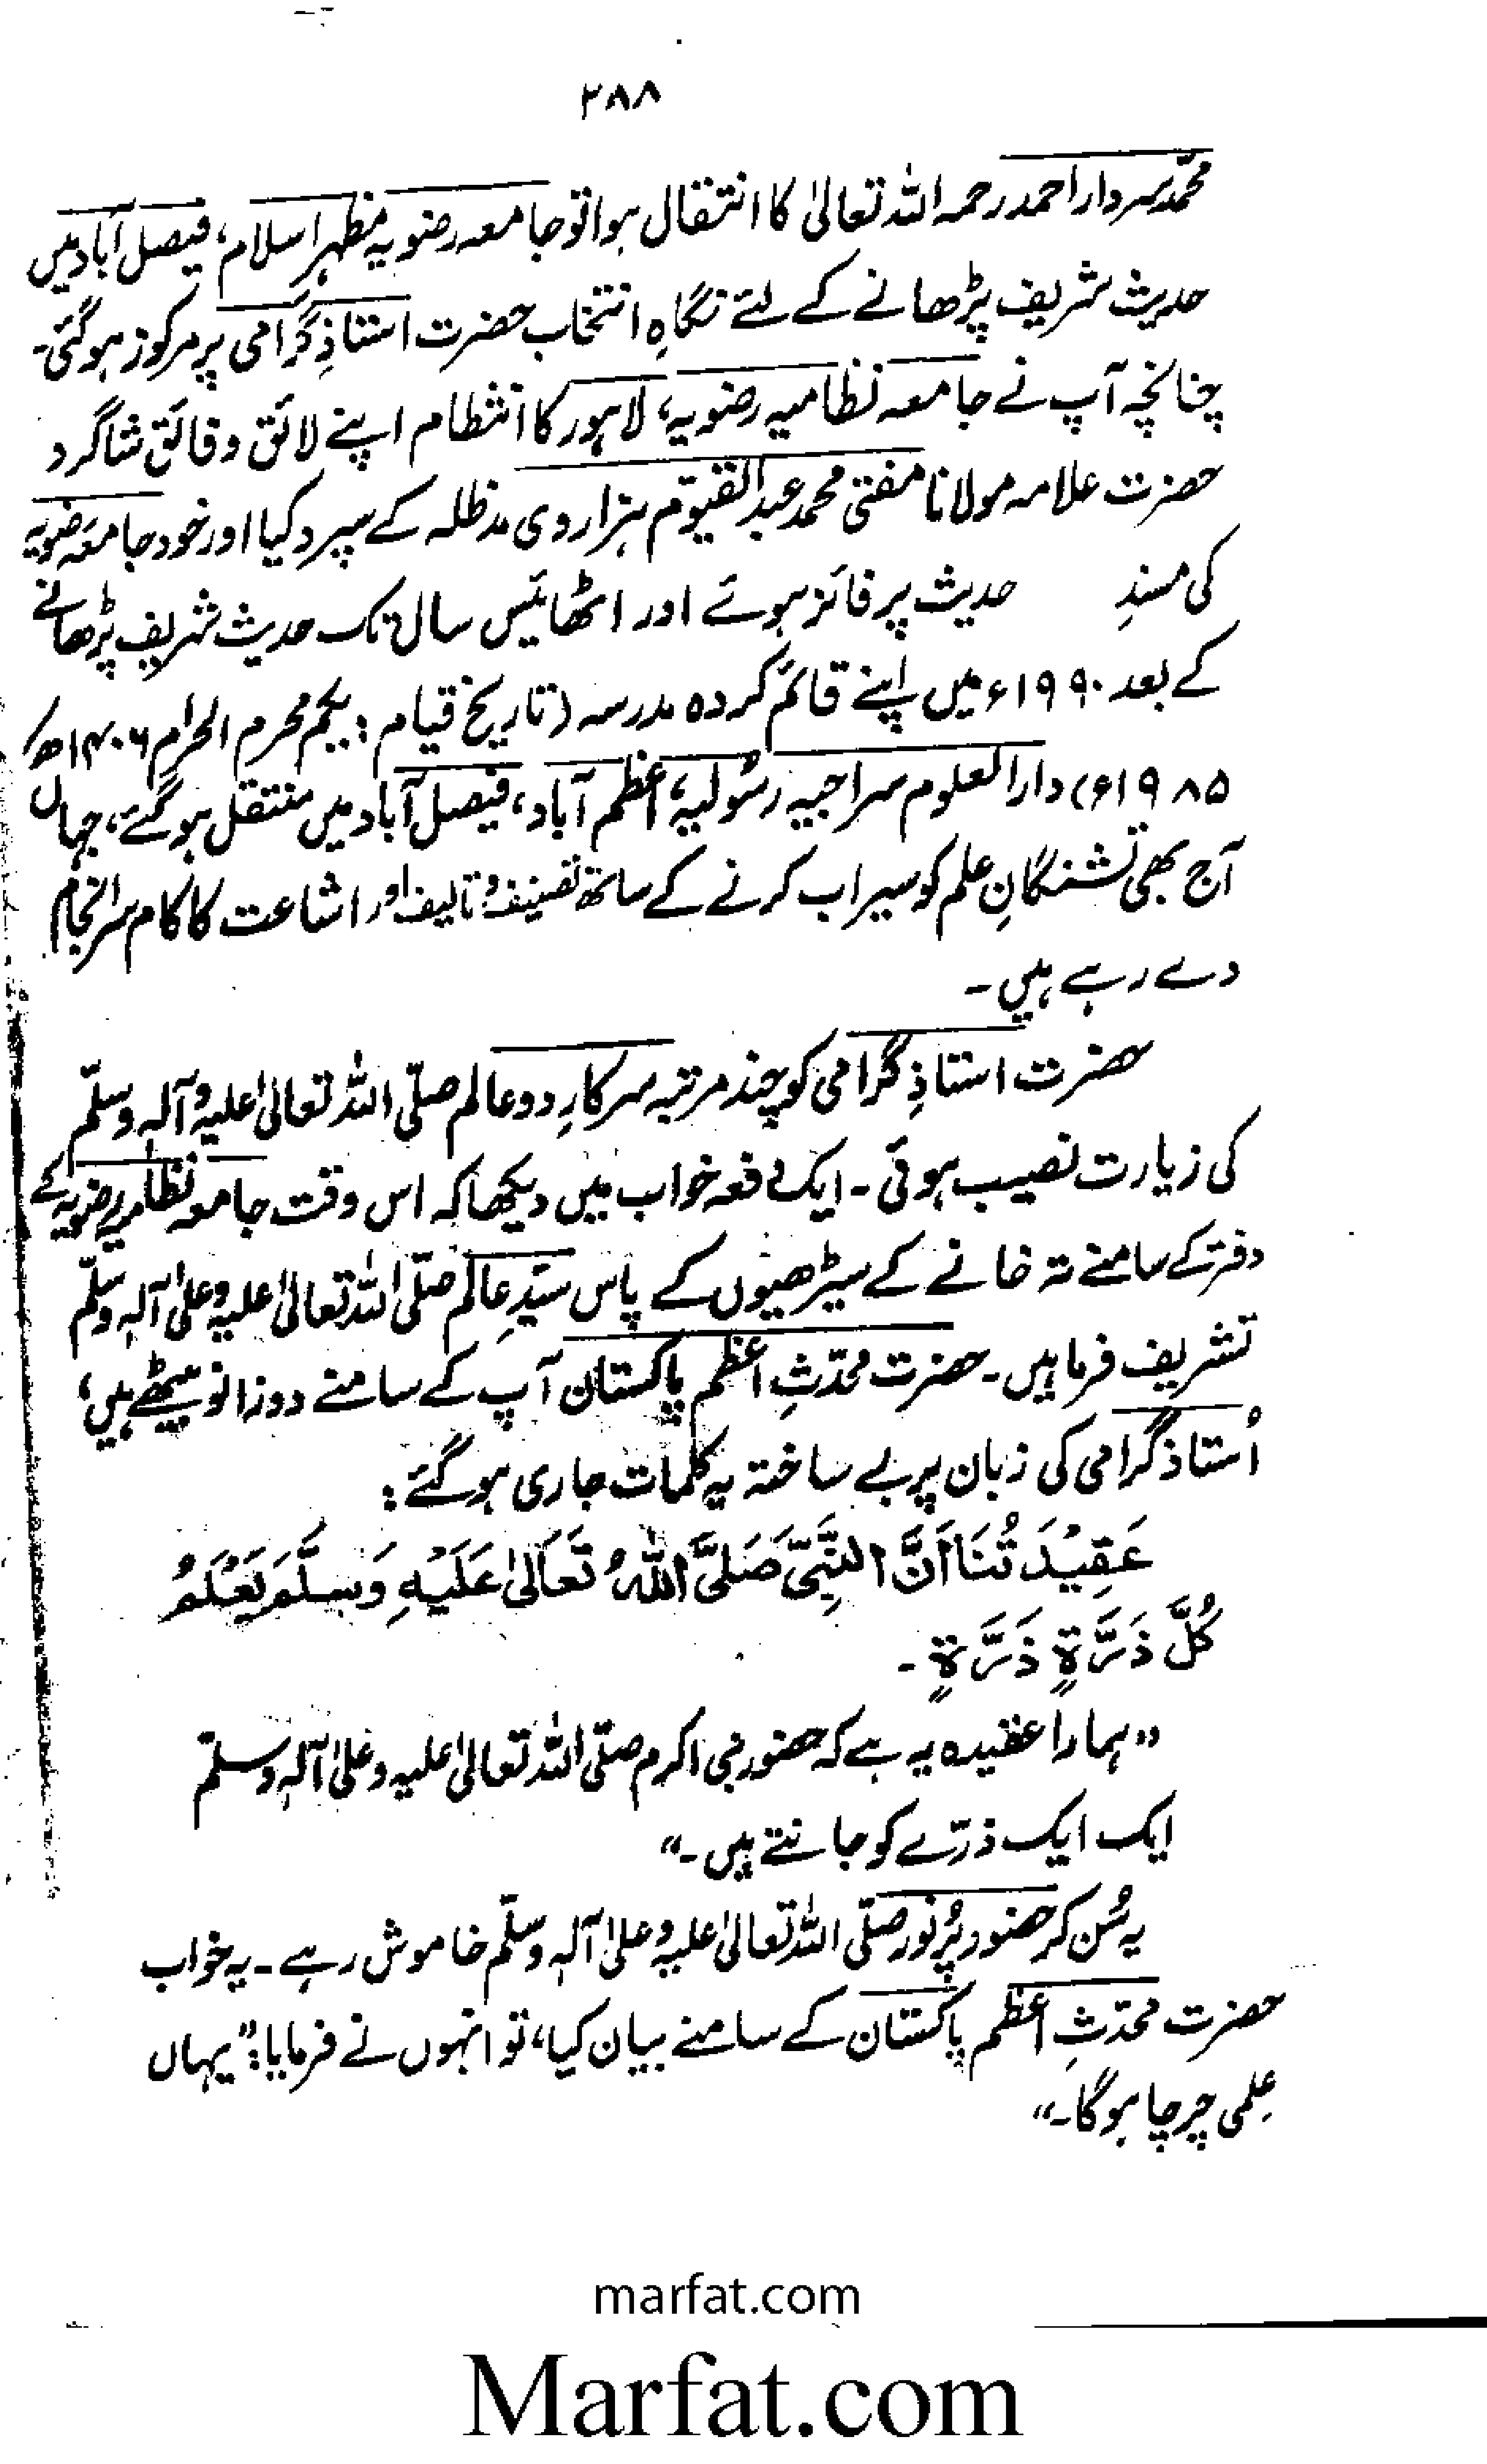 ۲۸۸
محمد سردار احمد رحمہ اللہ تعالیٰ کا انتقال ہوا تو جامعہ رضویہ مظہرِ اسلام، فیصل آباد میں
حدیث شریف پڑھانے کے لئے نگاہِ انتخاب حضرت استاذِ گرامی پر مرکوز ہوگئی۔
چنانچہ آپ نے جامعہ نظامیہ رضویہ، لاہور کا انتظام اپنے لائق و فائق شاگرد
حضرت علامہ مولانا مفتی محمد عبدالقیّوم ہزاروی مدظلہ کے سپرد کیا اور خود جامعہ رضویہ
کی مسندِ حدیث پر فائز ہوئے اور اٹھائیس سال تک حدیث شریف پڑھانے
کے بعد ۱۹۹۰ء میں اپنے قائم کردہ مدرسہ (تاریخ قیام: یکم محرم الحرام ۱۴۰۶ھ/
۱۹۸۵ء) دارالعلوم سراجیہ رسُولیہ، اعظم آباد، فیصل آباد میں منتقل ہوگئے، جہاں
آج بھی تشنگانِ علم کو سیراب کرنے کے ساتھ تصنیف و تالیف اور اشاعت کا کام سرانجام
دے رہے ہیں۔
حضرت استاذِ گرامی کو چند مرتبہ سرکارِ دو عالم صلّی اللہ تعالیٰ علیہ وآلہٖ وسلّم
کی زیارت نصیب ہوئی۔ ایک دفعہ خواب میں دیکھا کہ اس وقت جامعہ نظامیہ رضویہ کے
دفتر کے سامنے تہ خانے کے سیڑھیوں کے پاس سیّدِ عالم صلّی اللہ تعالیٰ علیہ وعلیٰ آلہٖ وسلّم
تشریف فرما ہیں۔ حضرت محدّثِ اعظم پاکستان آپ کے سامنے دوزانو بیٹھے ہیں،
اُستاذ گرامی کی زبان پر بے ساختہ یہ کلمات جاری ہوگئے:
عَقِيْدَتُنَا أَنَّ النَّبِيَّ صَلَّى اللهُ تَعَالىٰ عَلَيْهِ وَسَلَّمَ يَعْلَمُ
كُلَّ ذَرَّةٍ ذَرَّةٍ -
"ہمارا عقیدہ یہ ہے کہ حضور نبی اکرم صلّی اللہ تعالیٰ علیہ وعلیٰ آلہٖ وسلّم
ایک ایک ذرّے کو جانتے ہیں۔"
یہ سُن کر حضور پُرنور صلّی اللہ تعالیٰ علیہ وعلیٰ آلہٖ وسلّم خاموش رہے۔ یہ خواب
حضرت محدّثِ اعظم پاکستان کے سامنے بیان کیا، تو انہوں نے فرمایا: "یہاں
عِلمی چرچا ہوگا۔"
marfat.com
Marfat.com